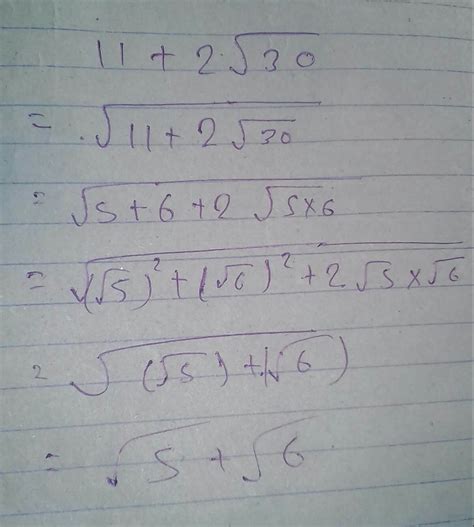 11 + 2√30
= √(11 + 2√30)
= √(5 + 6 + 2√(5×6))
= √((√5)² + (√6)² + 2√5 × √6)
= √((√5) + (√6))
= √5 + √6